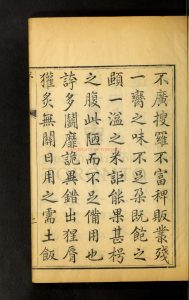 不廣搜羅不富稗販叢殘
一臠之味不足朶既飽之
頤一溢之米詎能果甚枵
之腹此陋而不足備用也
誇多鬭靡詭異錯出猩脣
玃炙無關日用之需土飯